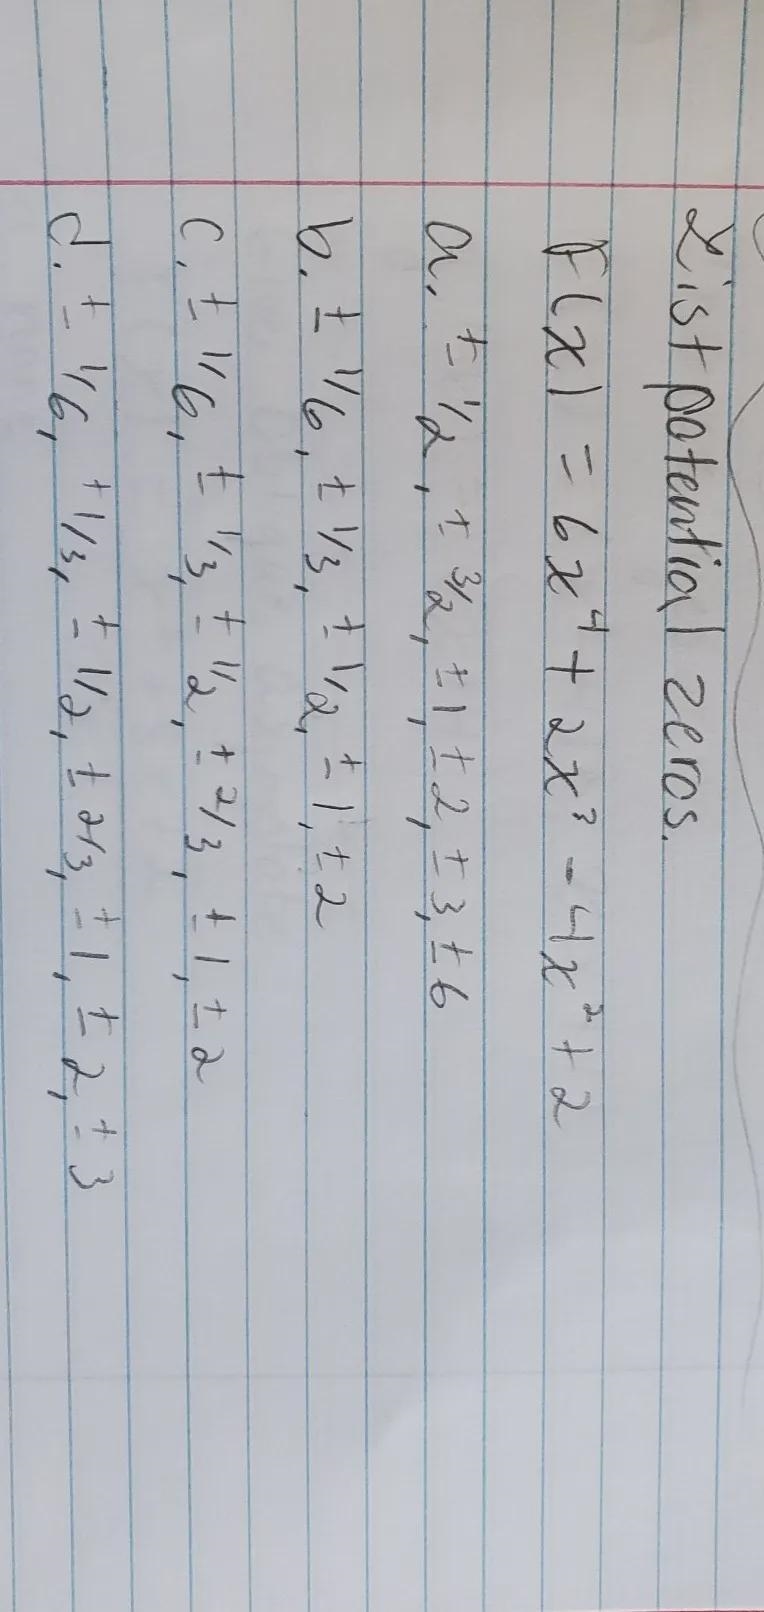 List potential zeros.
F(x) = 6x⁴ + 2x³ - 4x² + 2
a. ± 1/2, ± 3/2, ±1, ±2, ±3, ±6
b. ± 1/6, ± 1/3, ± 1/2, ±1, ±2
c. ± 1/6, ± 1/3, ± 1/2, ± 2/3, ±1, ±2
d. ± 1/6, +1/3, ± 1/2, ± 2/3, ±1, ±2, ±3